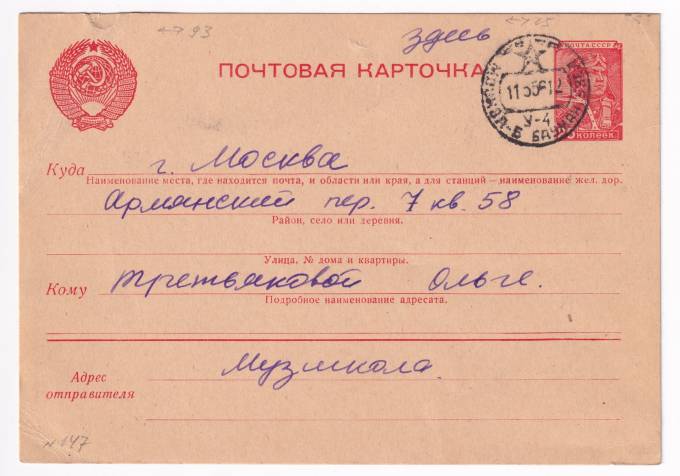 93
25
здесь
ПОЧТОВАЯ КАРТОЧКА
ПОЧТА СССР
МОСКВА
11556-12
У-4
КОПЕЕК
Куда г. Москва
Наименование места, где находится почта, и области или края, а для станций – наименование жел. дор.
Армянский пер. 7 кв. 58
Район, село или деревня.
Улица, № дома и квартиры.
Кому Третьяковой Ольге.
Подробное наименование адресата.
Музшкола.
Адрес
отправителя
N147